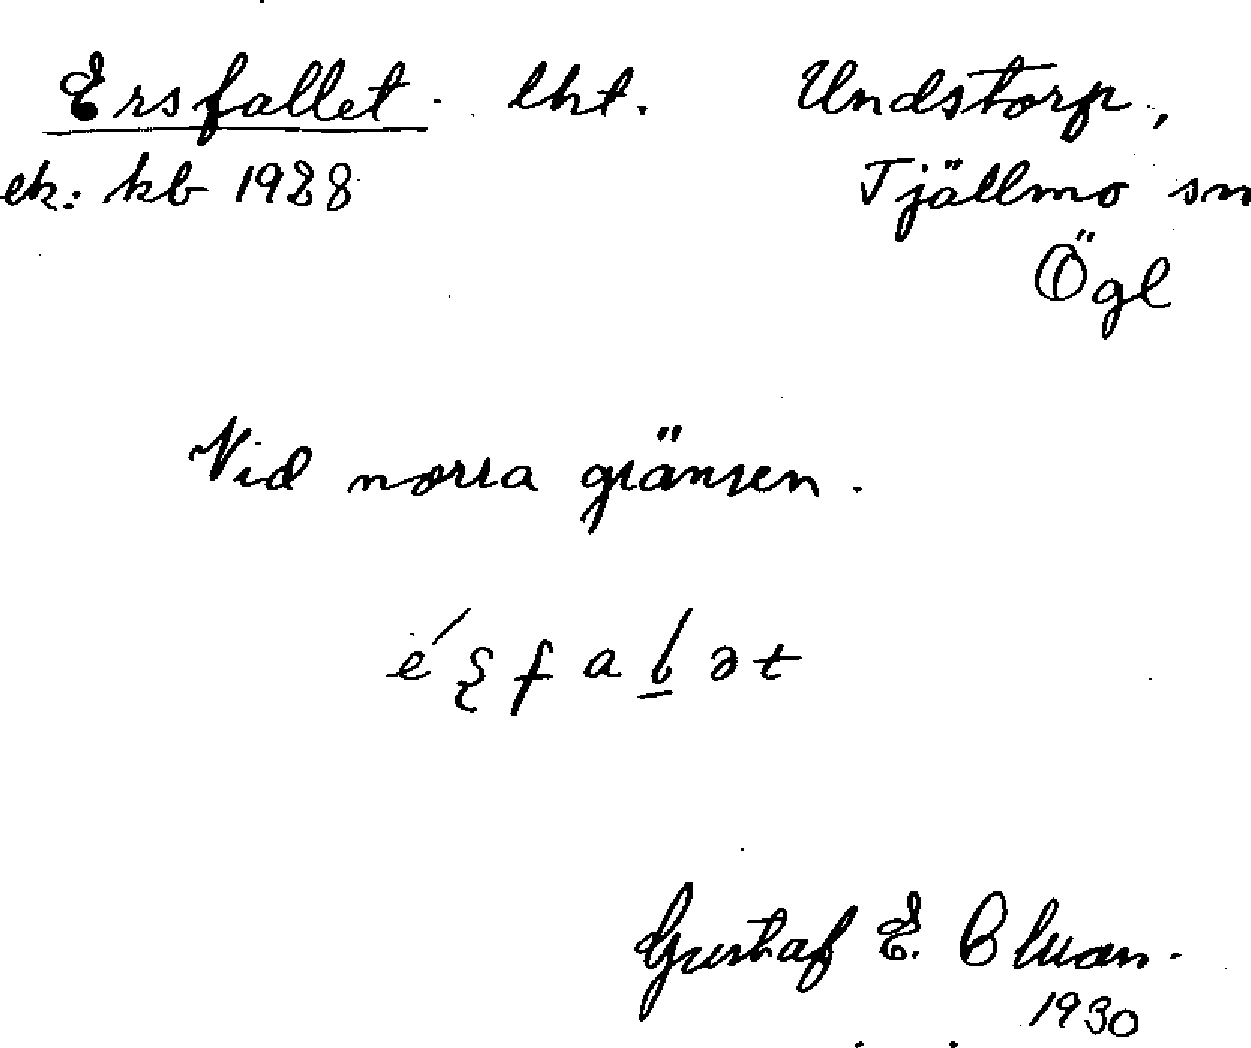 Ersfallet. lht. Undstorp,
ek. kb 1928 Tjällmo sn
Ögl
Vid norra gränsen.
Gustaf E.
1930